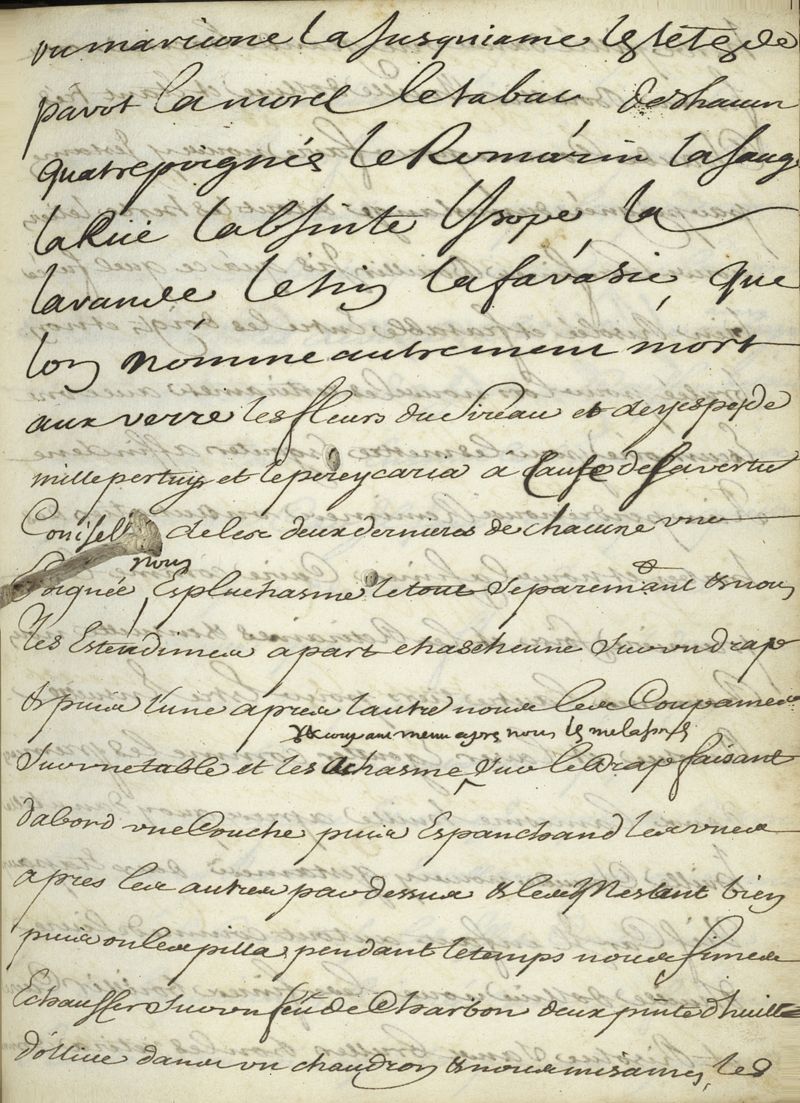 ou maricone la Jusquiame les tetes de
pavot la morel le tabac de chacun
quatre poignés le Romárin la saug
la Rüe labsinte ysope la
lavande le tin la favasie, que
lon nomme autrement mort
aux verre les fleurs du Sireau et de
millepertuy et le perey caria a Cause de sa vertu
de les deux dernieres de chacune vne
Poignée, nous Espluchasme le tout separemant & nous
les Estendimes apart chascheune sur vn drap
& puis l'une apres lautre nous les Coupames
& coup au menu apres nous les melasmes
sur vne table et les achasme sur le drap faisant
dabord vne Couche puis Espanchand les vnes
apres les autres par dessus & les Meslant bien
puis on les pilla, pendant le temps nous fimes
Echauffer sur vn feu de Charbon deux pinte d'huille
d'ollive dans vn chaudron & nous misames, les